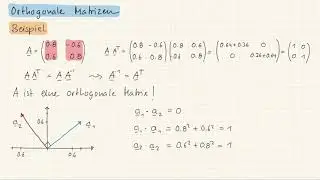 Orthogonale Matrizen
Beispiel
A = (0.8 -0.6 / 0.6 0.8) A Aᵀ = (0.8 -0.6 / 0.6 0.8) (0.8 0.6 / -0.6 0.8) = (0.64+0.36 0 / 0 0.36+0.64) = (1 0 / 0 1)
A Aᵀ = A A⁻¹ ⇝ A⁻¹ = Aᵀ
A ist eine orthogonale Matrix!
a₂ a₁ a₁ · a₂ = 0
a₁ · a₁ = 0.8² + 0.6² = 1
0.6 0.6 a₂ · a₂ = 0.6² + 0.8² = 1